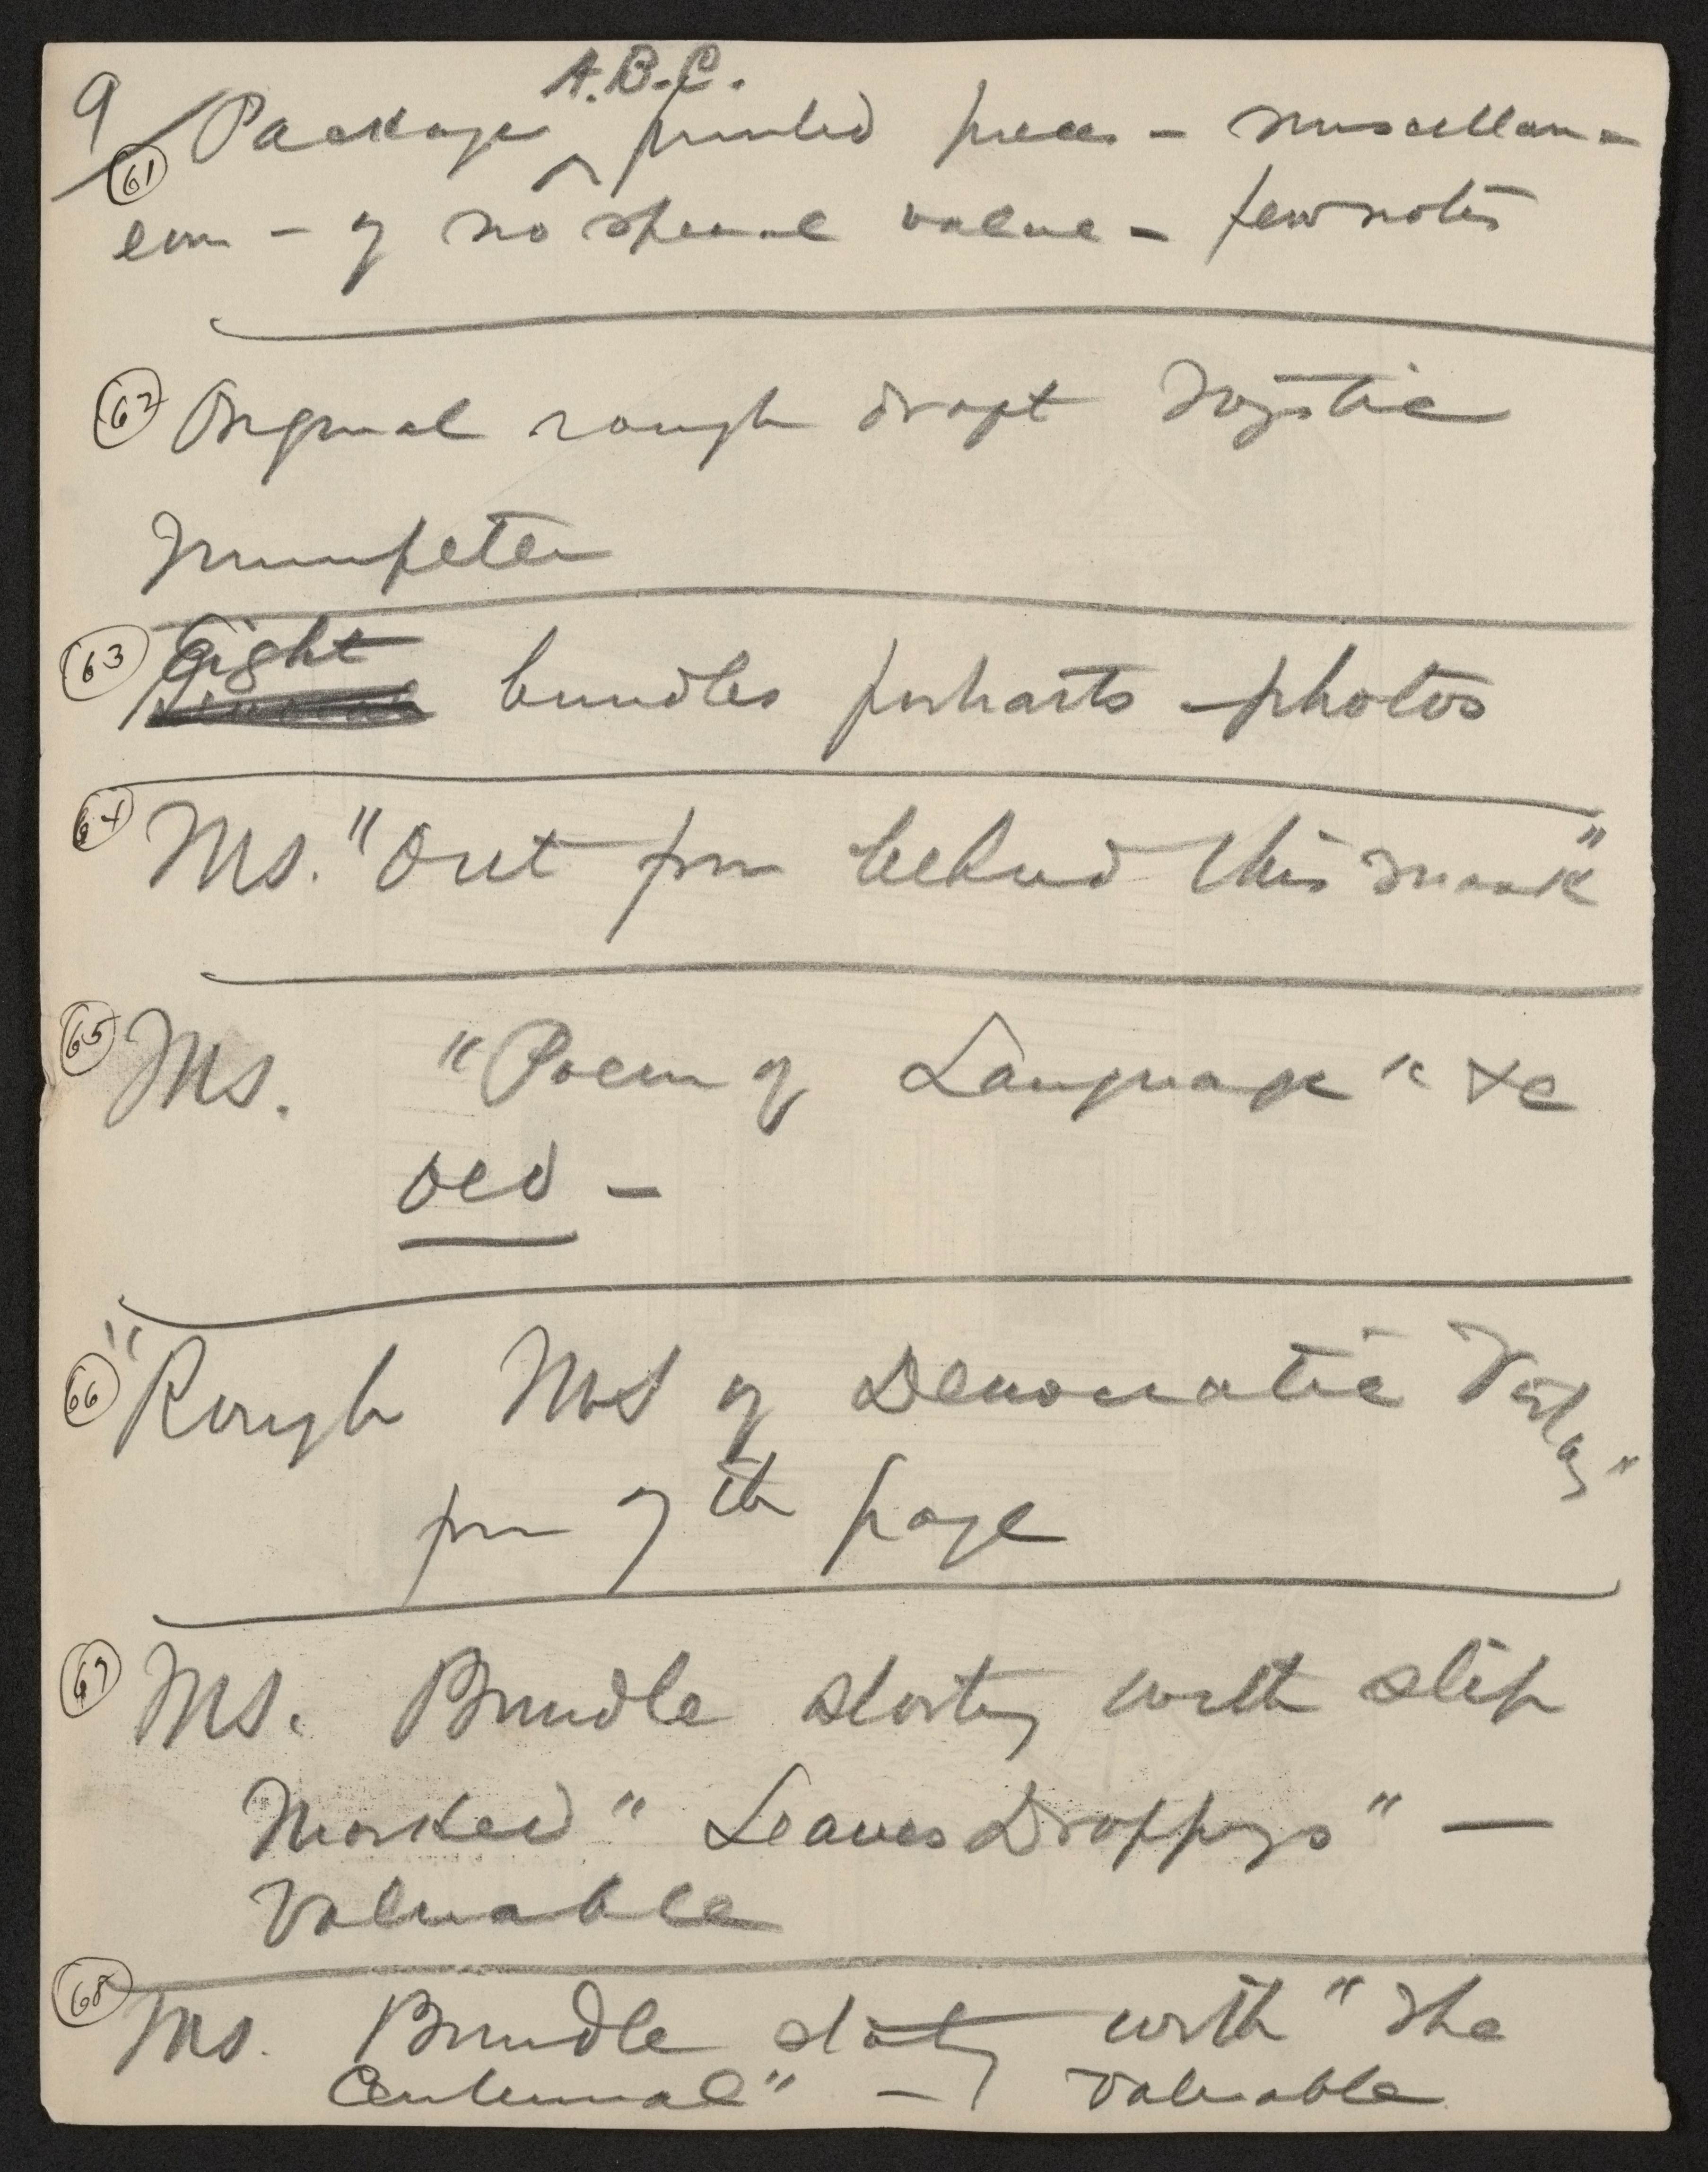 9
A.B.C.
61 Package ‸ printed pieces - miscellan-
eous - of no special value - few notes
62 Original rough draft Mystic
Trumpeter
63 Eight
bundles portraits - photos
64 Ms. "Out from behind this mask"
65 Ms. "Poem of Language" &c
old -
66 "Rough MS of Democratic Vistas"
from 7th page
67 MS. Bundle starting with slip
Marked "Leaves Droppings" —
Valuable
68 MS. Bundle starting with "The
Centennial" - Valuable